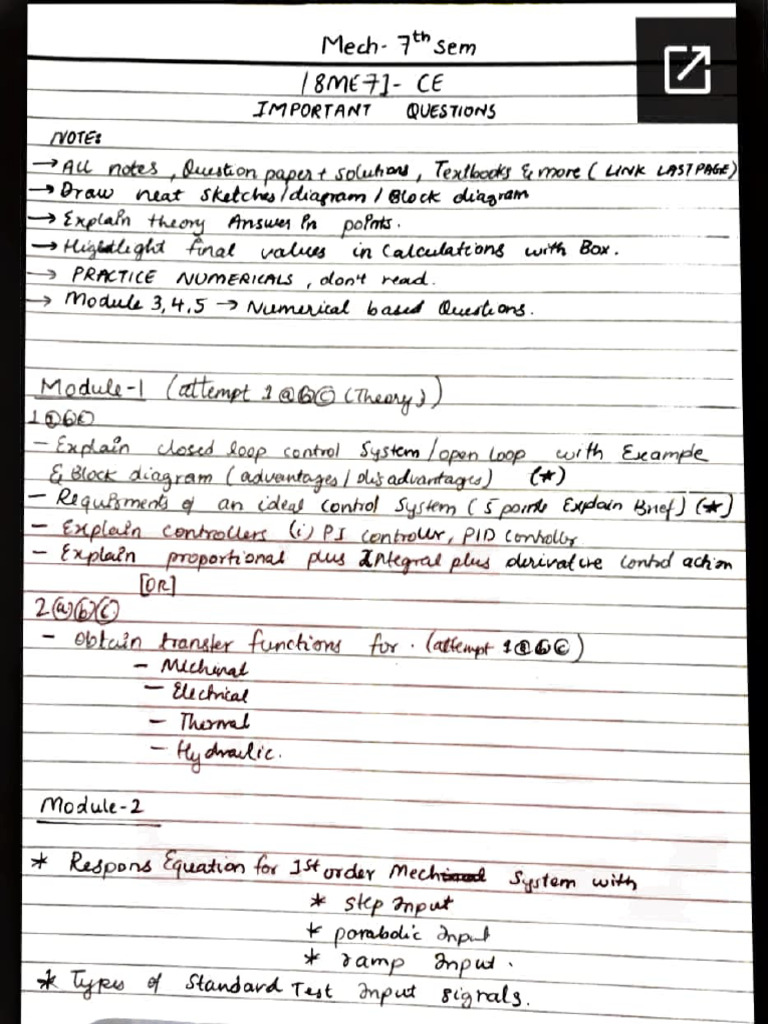 Mech- 7th Sem
18ME71- CE
IMPORTANT QUESTIONS
NOTE:
→ All notes, Question paper + solutions, Textbooks & more ( LINK LAST PAGE)
→ Draw neat sketches/diagram / Block diagram
→ Explain theory Answer in points.
→ Hightlight final values in Calculations with Box.
→ PRACTICE NUMERICALS, don't read.
→ Module 3,4,5 → Numerical based Questions.
Module-1 (attempt 1 ⓐⓑⓒ (Theory))
1ⓐⓑⓒ
- Explain closed loop control System/open loop with Example
& Block diagram (advantages/disadvantages) (*)
- Requirments of an ideal control System (5 points Explain Brief) (*)
- Explain controllers (i) PI controller, PID controller
- Explain proportional plus Integral plus derivative control action
[OR]
2ⓐⓑⓒ
- Obtain transfer functions for . (attempt 1ⓐⓑⓒ)
- Mechinal
- Electrical
- Thermal
- Hydraulic.
Module-2
* Respons Equation for 1st order Mech System with
* Step Input
* parabolic Input
* ramp Input.
* Types of Standard Test Input signals.